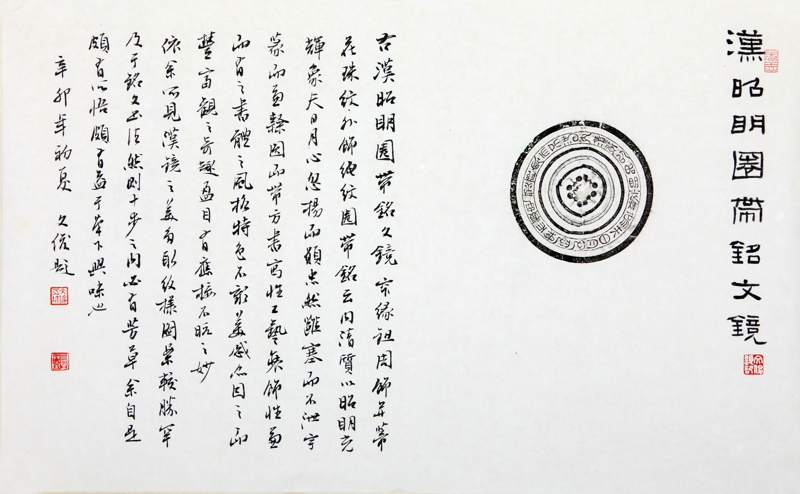 漢昭明圈帶銘文鏡
漢昭明圈帶銘文鏡緣周飾并蒂
花珠紋外飾圈帶銘云内清質以昭明光
輝象夫日月心忽揚而願忠然雍塞而不泄字
篆而兼隸圓而帶方書寫性工藝裝飾性兼
而有之書體之風格特色不窮美感亦因之而
豐富觀之奇趣盈目有應接不暇之妙
依余所見漢鏡之美多取紋樣圖案較勝罕
及于銘文書法然則十步之内必有芳草余自是
頗有所悟頗有益于筆下興味也
辛卯年初夏 題